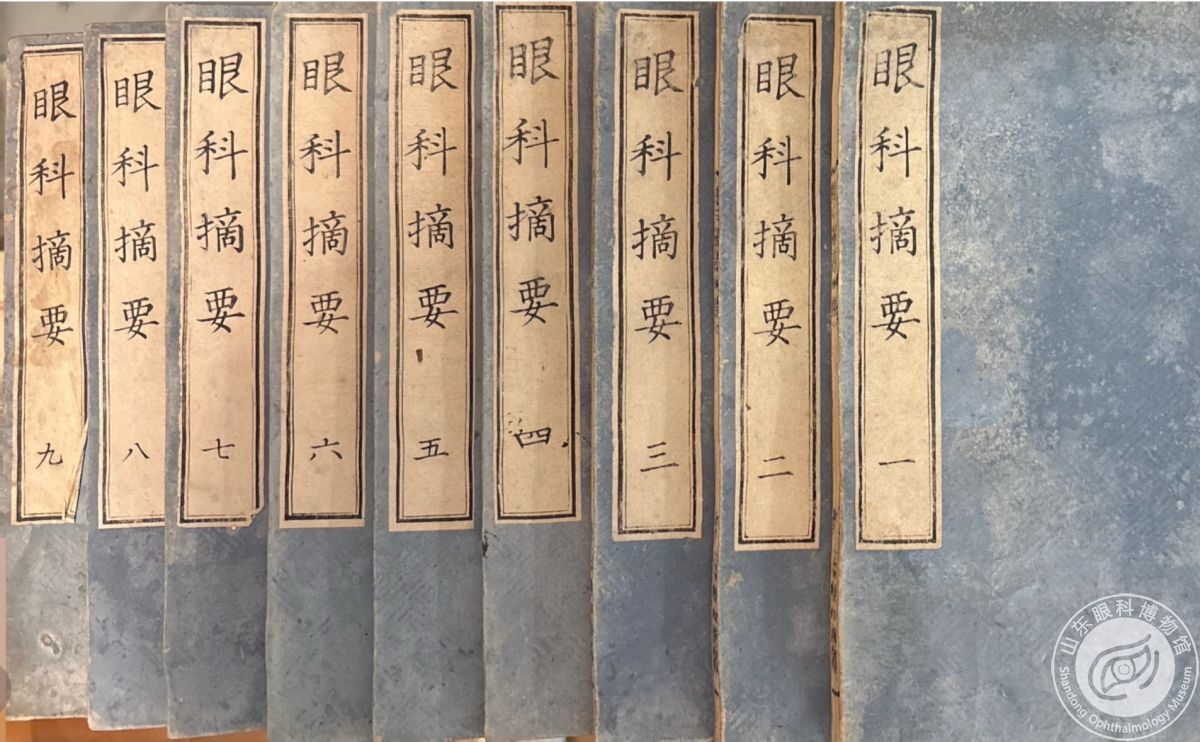 眼科摘要 一
眼科摘要 二
眼科摘要 三
眼科摘要 四
眼科摘要 五
眼科摘要 六
眼科摘要 七
眼科摘要 八
眼科摘要 九
山东眼科博物馆
Shandong Ophthalmology Museum